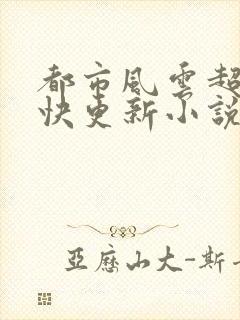 都市風雲超
快更新小說
亞歷山大-斯